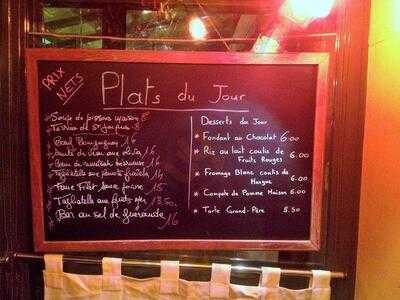 PRIX
NETS
Plats du Jour
Soupe de poissons maison 8
Terrine de St Jacques 8
Bœuf Bourguignon 16
16
16
Tagliatelle aux 14
Faux Filet sauce 15
Tagliatelle aux fruits mer 13.50
Bar au sel de guerande 16
Desserts du Jour
* Fondant au Chocolat 6.00
* Riz au lait coulis de
Fruits Rouges 6.00
* Fromage Blanc coulis de
Mangue 6.00
* Compote de Pomme Maison 6.00
* Tarte Grand-Père 5.50